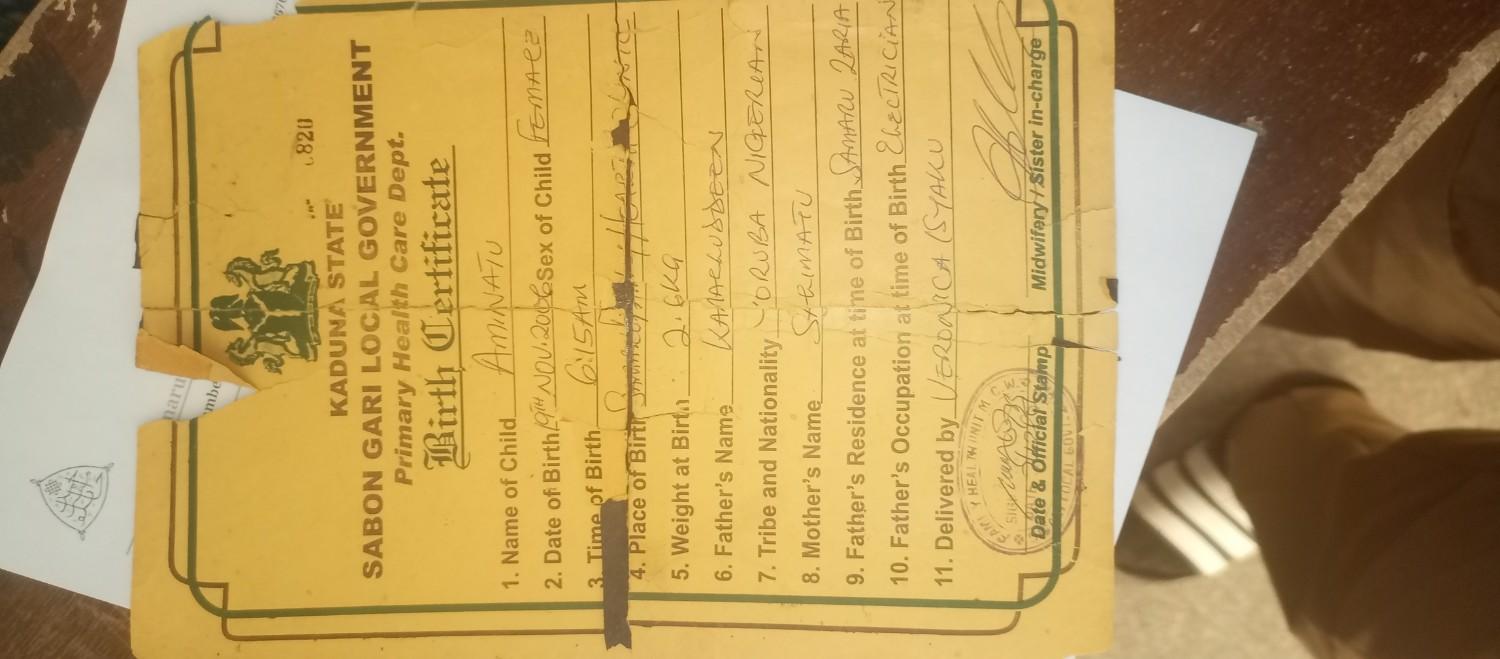 820
KADUNA STATE
SABON GARI LOCAL GOVERNMENT
Primary Health Care Dept.
Birth Certificate
1. Name of Child AMINATU
2. Date of Birth 19TH NOV. 2006 Sex of Child FEMALE
3. Time of Birth 6:15AM
4. Place of Birth
5. Weight at Birth 2.6KG
6. Father's Name KAMALUDDEEN
7. Tribe and Nationality YORUBA NIGERIAN
8. Mother's Name
9. Father's Residence at time of Birth SAMARU ZARIA
10. Father's Occupation at time of Birth ELECTRICIAN
11. Delivered by VERONICA ISYAKU
HEALTH UNIT
SIG
LOCAL GOVT
Date & Official Stamp Midwifery / Sister in-charge
maru
mbe